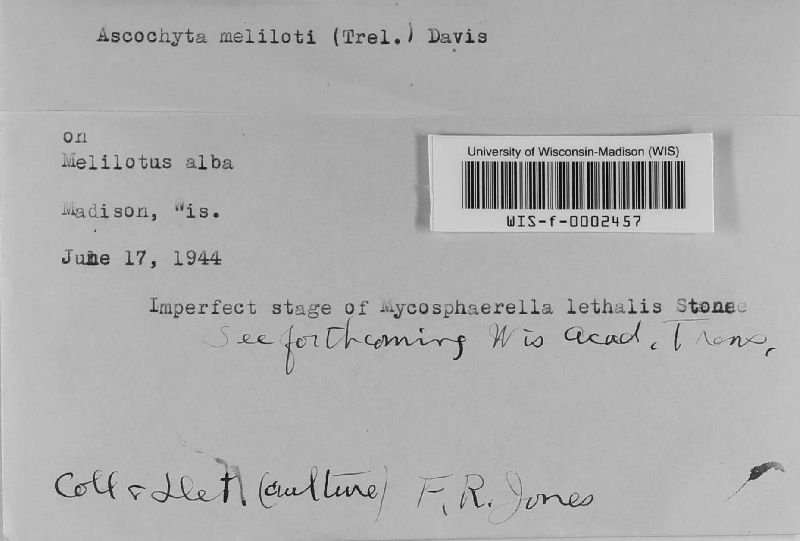 Ascochyta meliloti (Trel.) Davis
on
Melilotus alba
University of Wisconsin-Madison (WIS)
WIS-f-0002457
Madison, Wis.
June 17, 1944
Imperfect stage of Mycosphaerella lethalis Stone
See forthcoming Wis Acad, Trans,
Coll & Det. (culture) F. R. Jones